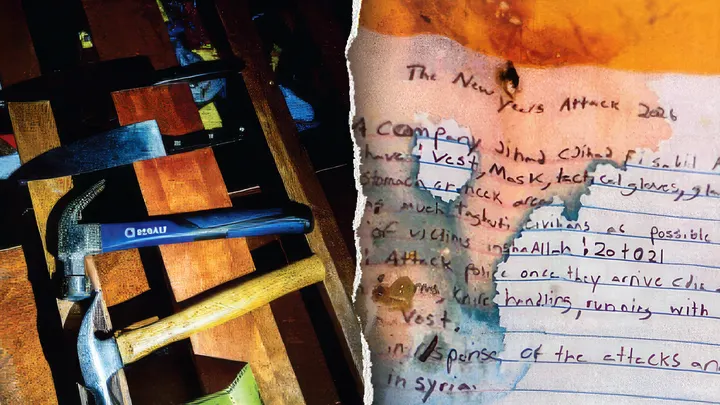 The New
Years Attack 2026
A Company Jihad (Jihad Fisabil A
have: Vest, Mask, tactical gloves, gl
stomach or neck area
as much taghuti civilians as possible
of victims inshaAllah: 20 to 21
: Attack police once they arrive (die
arms, knife handling, running with
Vest.
in response of the attacks an
in syria.